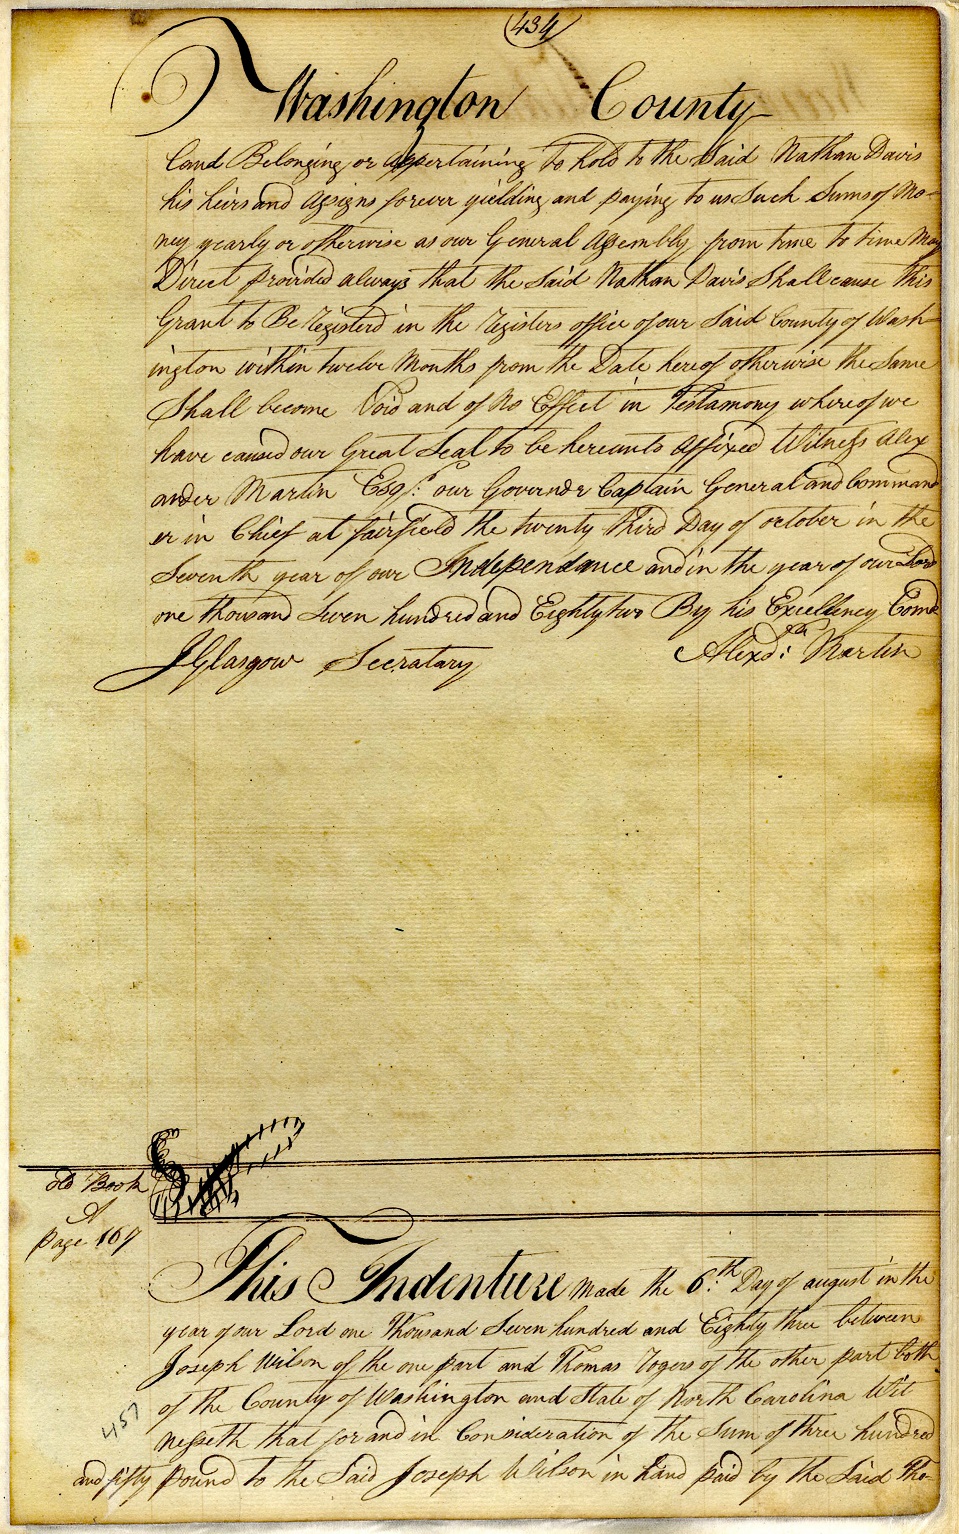 434
Washington County
land Belonging or appertaining To hold to the Said Nathan Davis
his heirs and assigns forever yielding and paying to us Such Sums of Mo-
ney yearly or otherwise as our General Assembly from time to time May
Direct provided always that the Said Nathan Davis Shall cause this
Grant to Be Registerd in the Registers office of our Said County of Wash-
ington within twelve Months from the Date hereof otherwise the Same
Shall become Void and of No Effect in Testamony whereof we
have caused our Great Seal to be hereunto affixed Witness Alex
ander Martin Esqr. our Governor Captain General and Command
er in Chief at fairfield the twenty third Day of october in the
Seventh year of our Independance and in the year of our Lord
one thousand Seven hundred and Eighty two By his Excellency Comd
J Glasgow Secratary Alexdr. Martin
old Book
A
page 167
This Indenture Made the 6th. Day of august in the
year of our Lord one Thousand Seven hundred and Eighty three between
Joseph Wilson of the one part and Thomas Rogers of the other part both
of the County of Washington and State of North Carolina Wit
nesseth that for and in Consideration of the Sum of three hundred
457
and fifty pound to the Said Joseph Wilson in hand paid by the Said Tho-